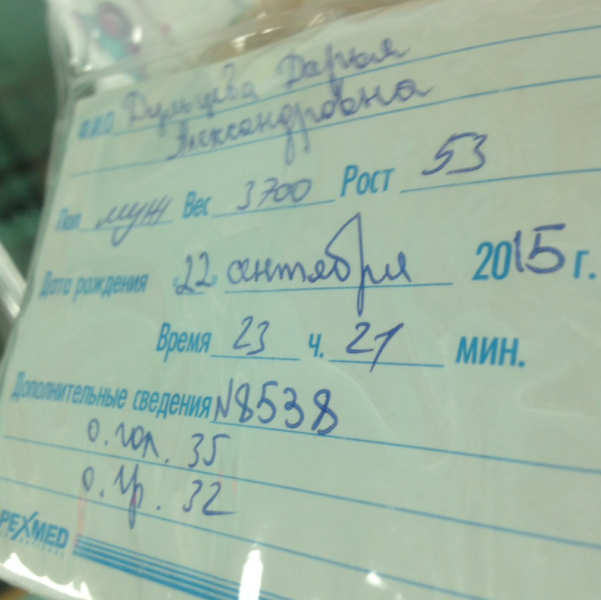 Ф.И.О. Дульцева Дарья
Александровна
Пол муж Вес 3700 Рост 53
Дата рождения 22 сентября 2015 г.
Время 23 ч. 21 мин.
Дополнительные сведения N8538
о. гол. 35
о. гр. 32
PEXMED